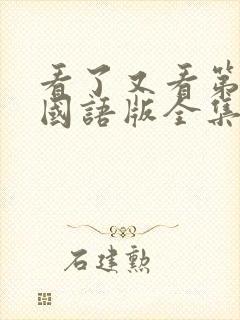 看了又看第
國語版全集
石建勲